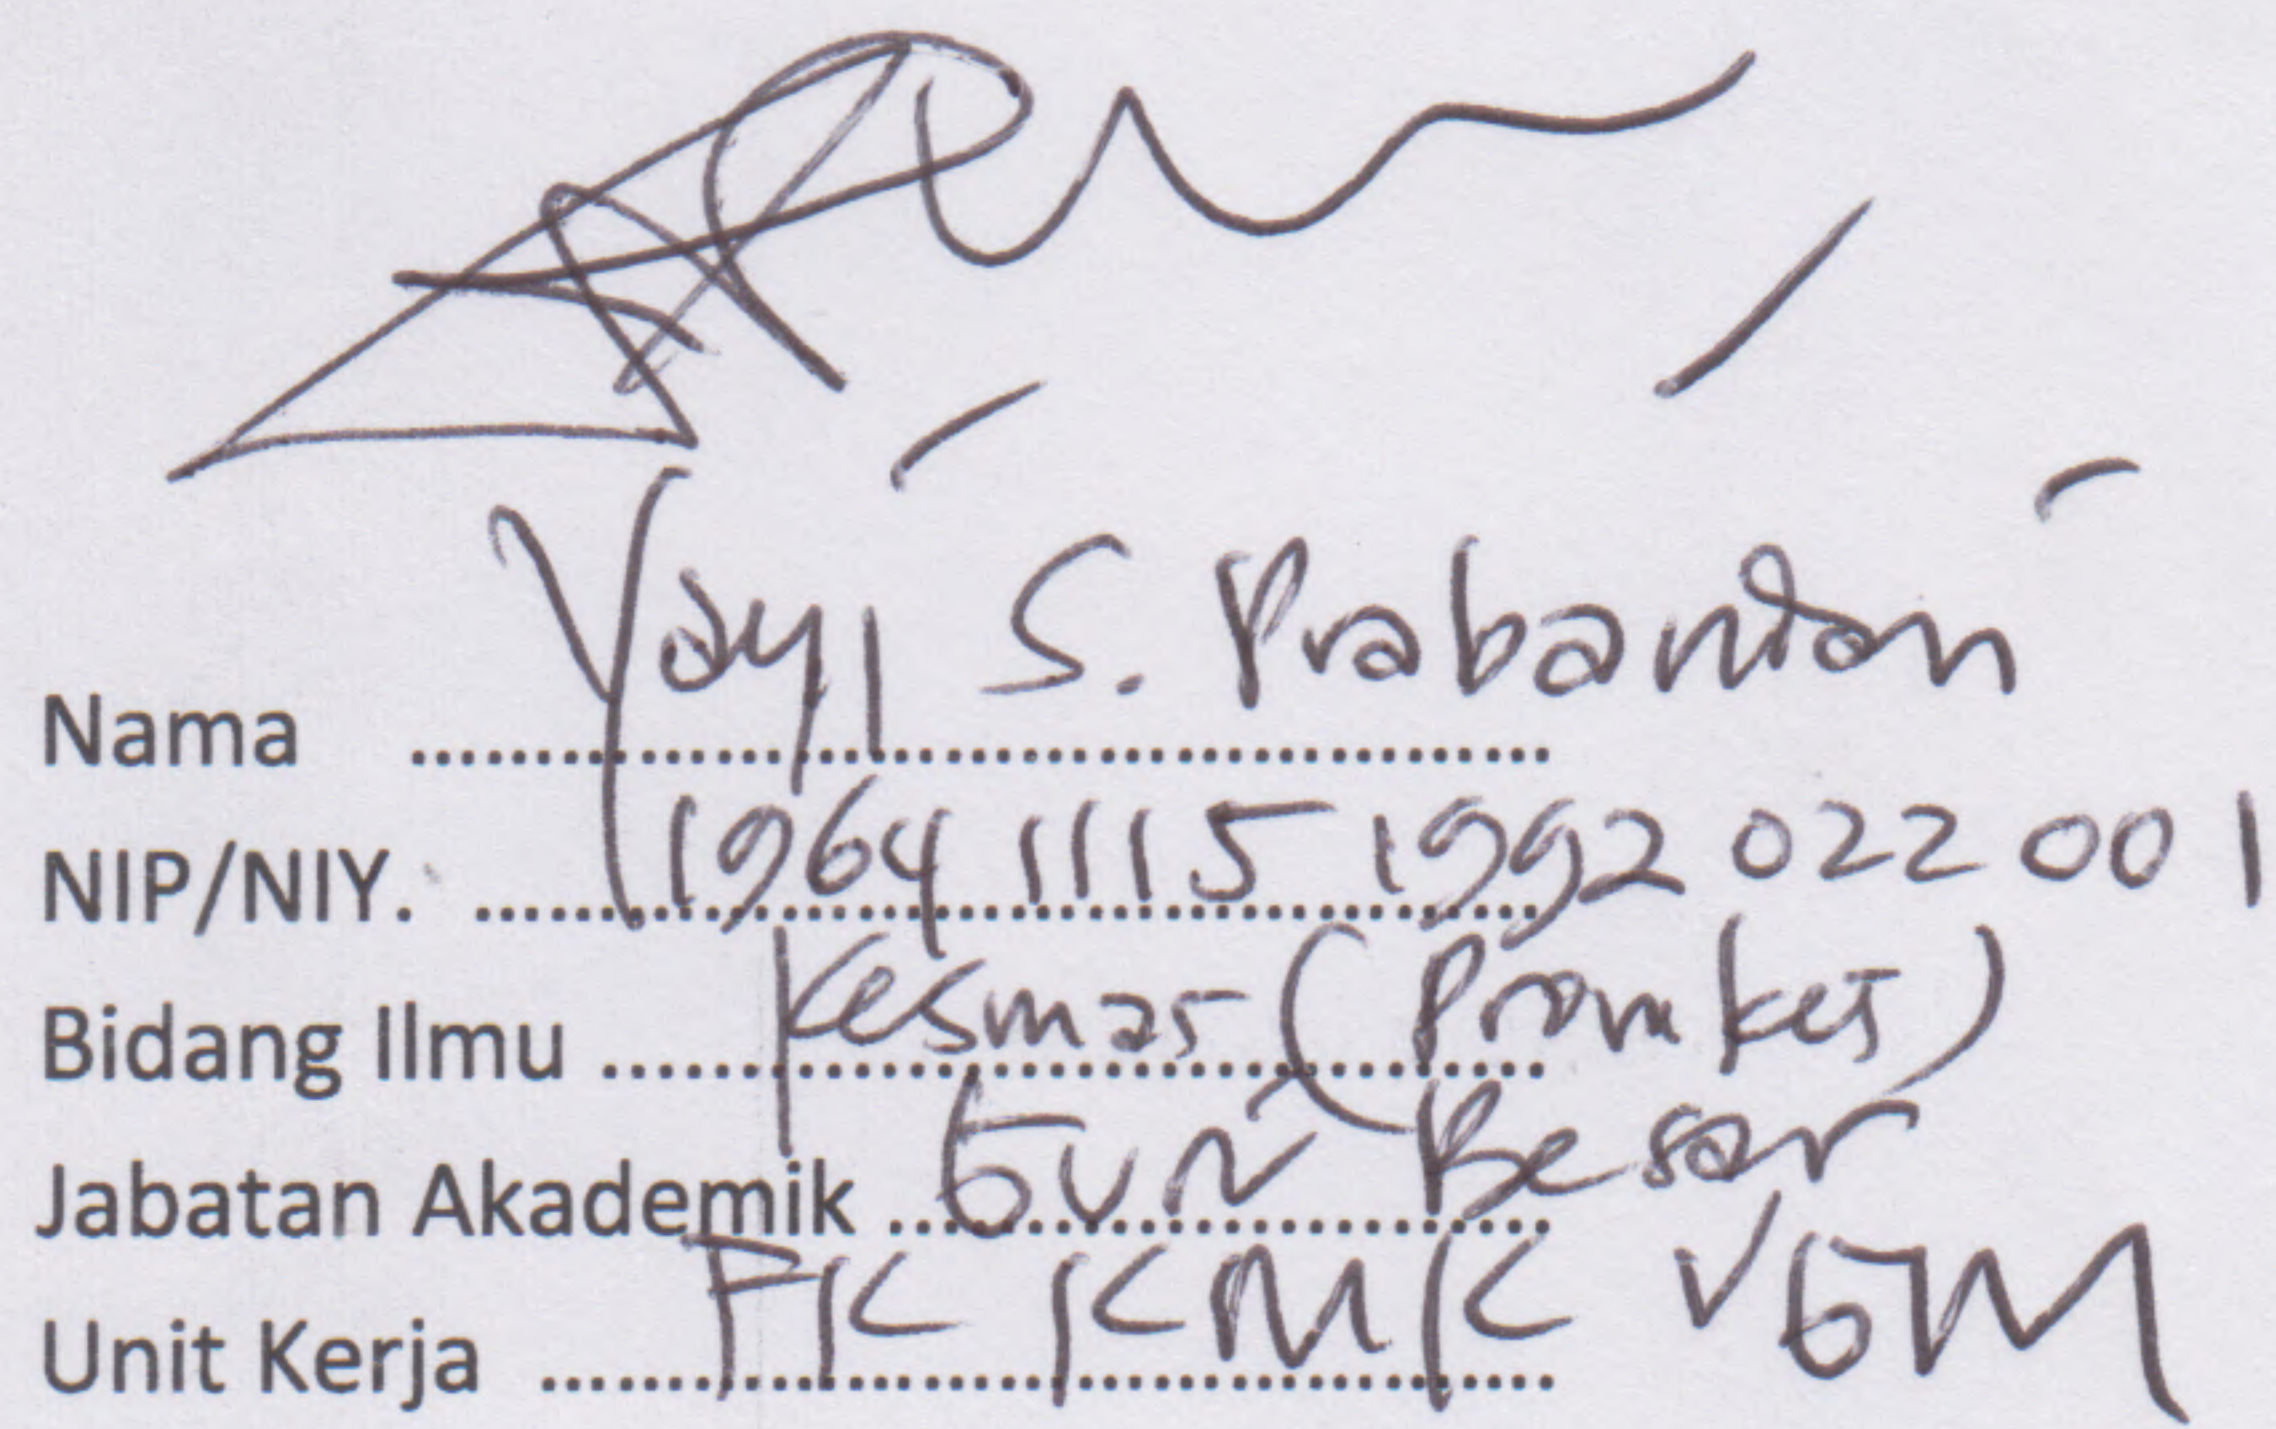 Nama Yayi S. Prabandari
NIP/NIY. 19641115 1992 022 001
Bidang Ilmu Kesmas (Promkes)
Jabatan Akademik Guru Besar
Unit Kerja FK KMK UGM